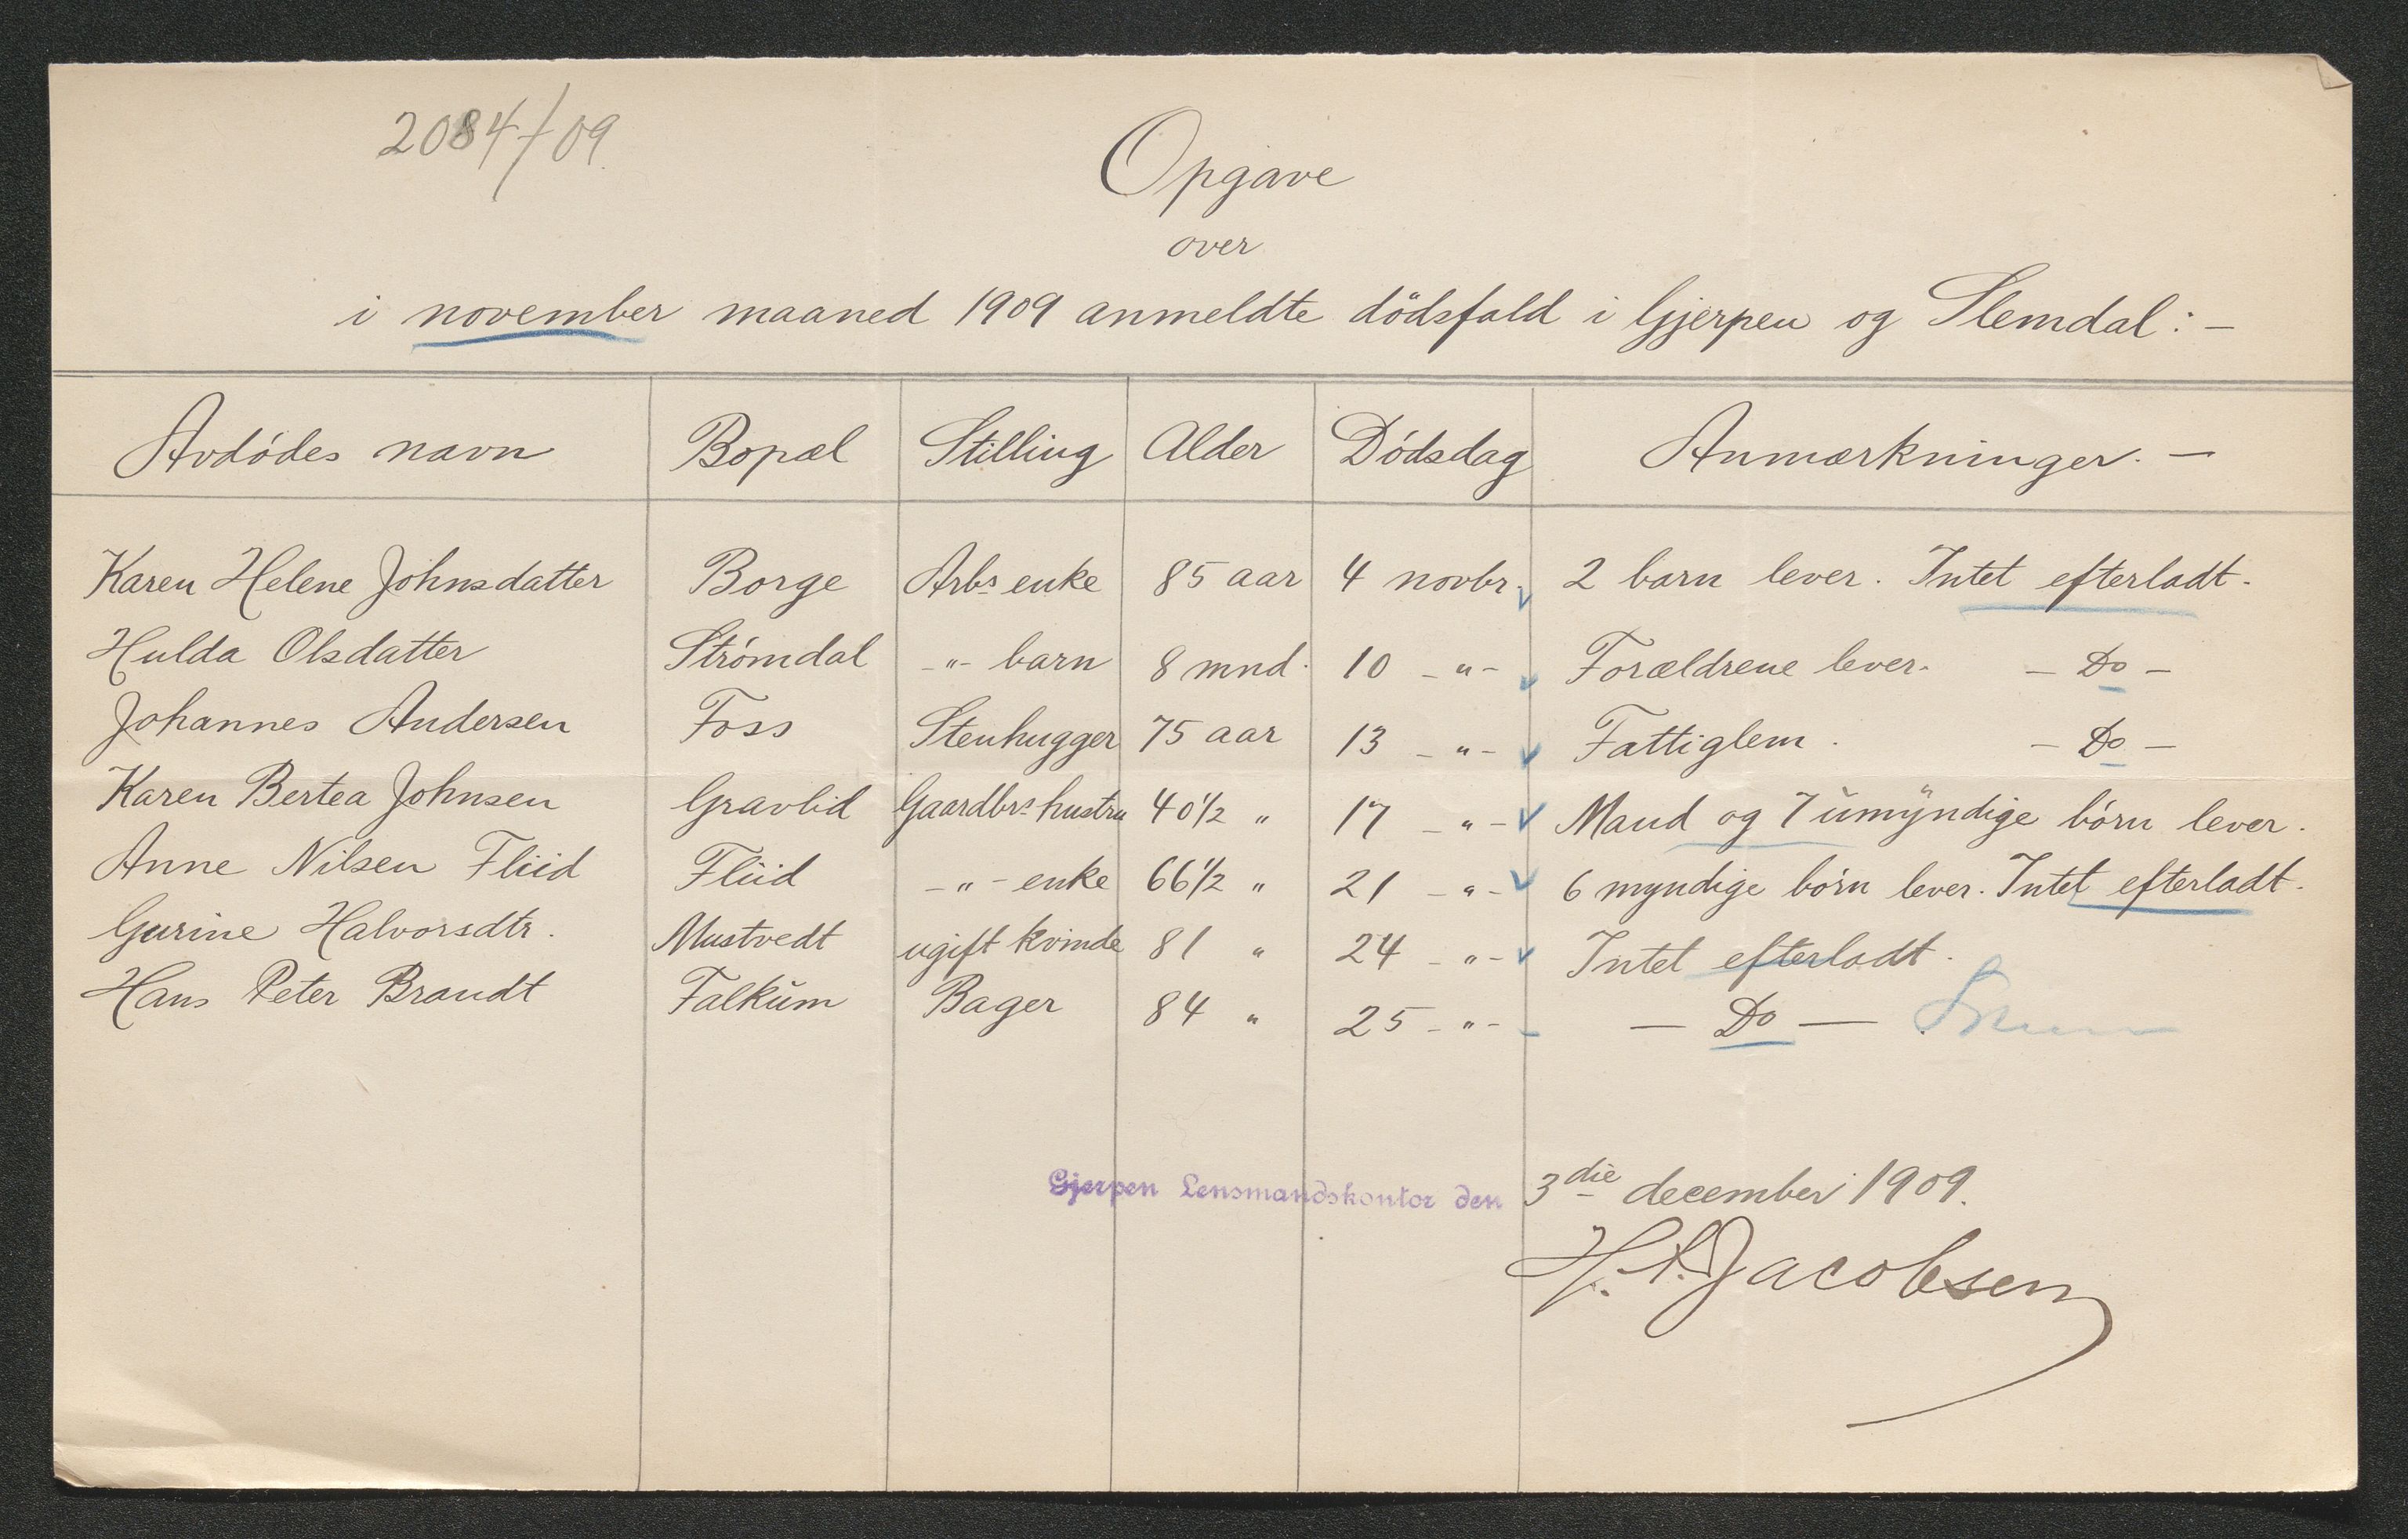 2084/09
Opgave
over
i november maaned 1909 anmeldte dödsfald i Gjerpen og Slemdal: –
Avdödes navn Bopæl Stilling Alder Dödsdag Anmærkninger. –
Karen Helene Johnsdatter Borge Arbs enke 85 aar 4 novbr. 2 barn lever. Intet efterladt.
Hulda Olsdatter Strömdal -"- barn 8 mnd. 10 -"- Forældrene lever. – Do –
Johannes Andersen Foss Stenhugger 75 aar 13 -"- Fattiglem. – Do –
Karen Bertea Johnsen Gravlid Gaardbrs hustru 40½ " 17 -"- Mand og 7 umyndige börn lever.
Anne Nilsen Fliid Fliid -"- enke 66½ " 21 -"- 6 myndige börn lever. Intet efterladt.
Gurine Halvorsdtr. Mustvedt ugift kvinde 81 " 24 -"- Intet efterladt.
Hans Peter Brandt Falkum Bager 84 " 25 -"- — Do —
Gjerpen Lensmandskontor den 3die december 1909.
Jacobsen